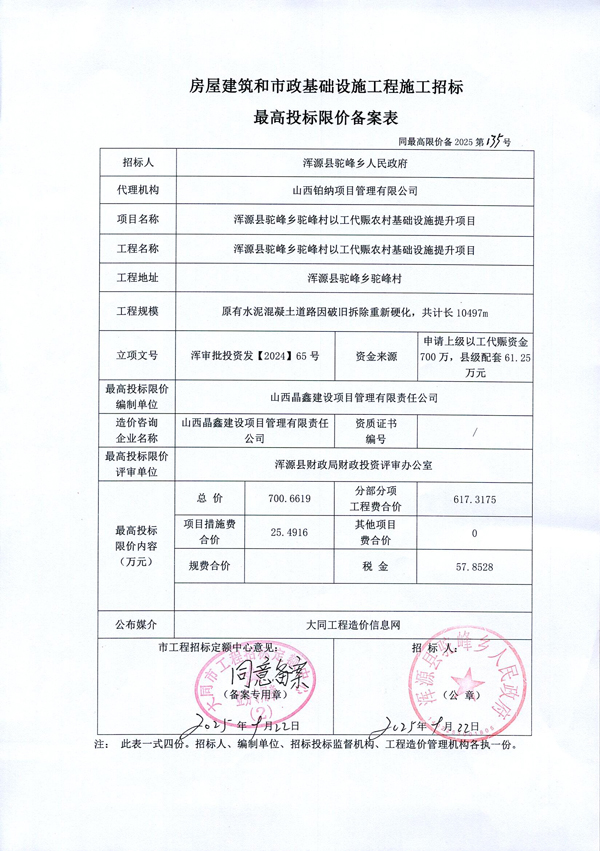 房屋建筑和市政基础设施工程施工招标
最高投标限价备案表
同最高限价备 2025 第 135 号
招标人 浑源县驼峰乡人民政府
代理机构 山西铂纳项目管理有限公司
项目名称 浑源县驼峰乡驼峰村以工代赈农村基础设施提升项目
工程名称 浑源县驼峰乡驼峰村以工代赈农村基础设施提升项目
工程地址 浑源县驼峰乡驼峰村
工程规模 原有水泥混凝土道路因破旧拆除重新硬化，共计长 10497m
立项文号 浑审批投资发【2024】65 号 资金来源 申请上级以工代赈资金
700 万，县级配套 61.25
万元
最高投标限价
编制单位 山西晶鑫建设项目管理有限责任公司
造价咨询
企业名称 山西晶鑫建设项目管理有限责任
公司 资质证书
编号 /
最高投标限价
评审单位 浑源县财政局财政投资评审办公室
最高投标
限价内容
（万元）
总 价 700.6619 分部分项
工程费合价 617.3175
项目措施费
合价 25.4916 其他项目
费合价 0
规费合价 税 金 57.8528
公布媒介 大同工程造价信息网
市工程招标定额中心意见：
同意备案
（备案专用章）
2025 年 9 月 22 日
招 标 人：
浑源县驼峰乡人民政府
（公 章）
2025 年 9 月 22 日
注： 此表一式四份。招标人、编制单位、招标投标监督机构、工程造价管理机构各执一份。